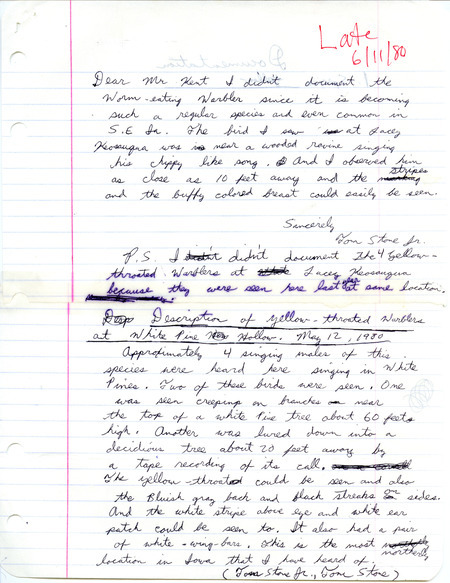 Late
6/11/80
Dear Mr. Kent I didn't document the
Worm-eating Warbler since it is becoming
such a regular species and even common in
S.E Ia. The bird I saw at Lacey
Keosaugua was in near a wooded ravine singing
his chippy like song. And I observed him
as close as 10 feet away and the stripes
and the buffy colored breast could easily be seen.
Sincerely
Tom Stone Jr.
P.S. I didn't document the 4 yellow-
throated Warblers at Lacey Keosaugua
because they were seen here last year at same location.
Description of yellow-throated Warblers
at White Pine Hollow. May 12, 1980
Approximately 4 singing males of this
species were heard here singing in White
Pines. Two of these birds were seen. One
was seen creeping on branches near
the top of a white Pine tree about 60 feet
high. Another was lured down into a
decidious tree about 20 feet away by
a tape recording of its call.
The yellow-throated could be seen and also
the Bluish gray back and black streaks on sides.
And the white stripe above eye and white ear
patch could be seen to. It also had a pair
of white-wing-bars. This is the most northerly
location in Iowa that I have heard of
(Tom Stone Jr., Tom Stone)